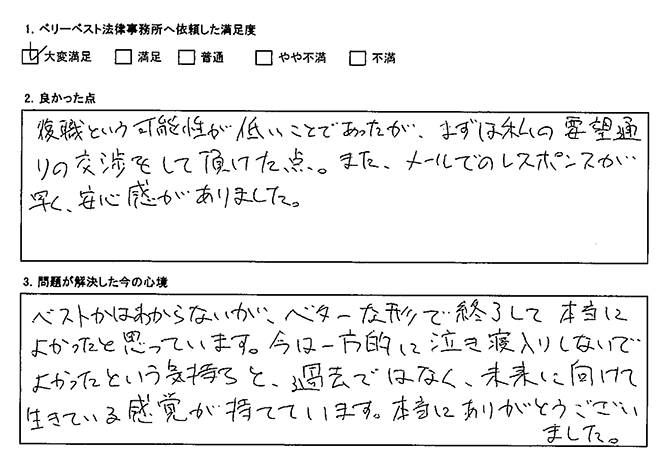 1. ベリーベスト法律事務所へ依頼した満足度
☑大変満足 □満足 □普通 □やや不満 □不満
2. 良かった点
復職という可能性が低いことであったが、まずは私の要望通
りの交渉をして頂けた点、。また、メールでのレスポンスが
早く、安心感がありました。
3. 問題が解決した今の心境
ベストかはわからないが、ベターな形で終了して本当に
よかったと思っています。今は一方的に泣き寝入りしないで
よかったという気持ちと、過去ではなく、未来に向けて
生きている感覚が持てています。本当にありがとうござい
ました。